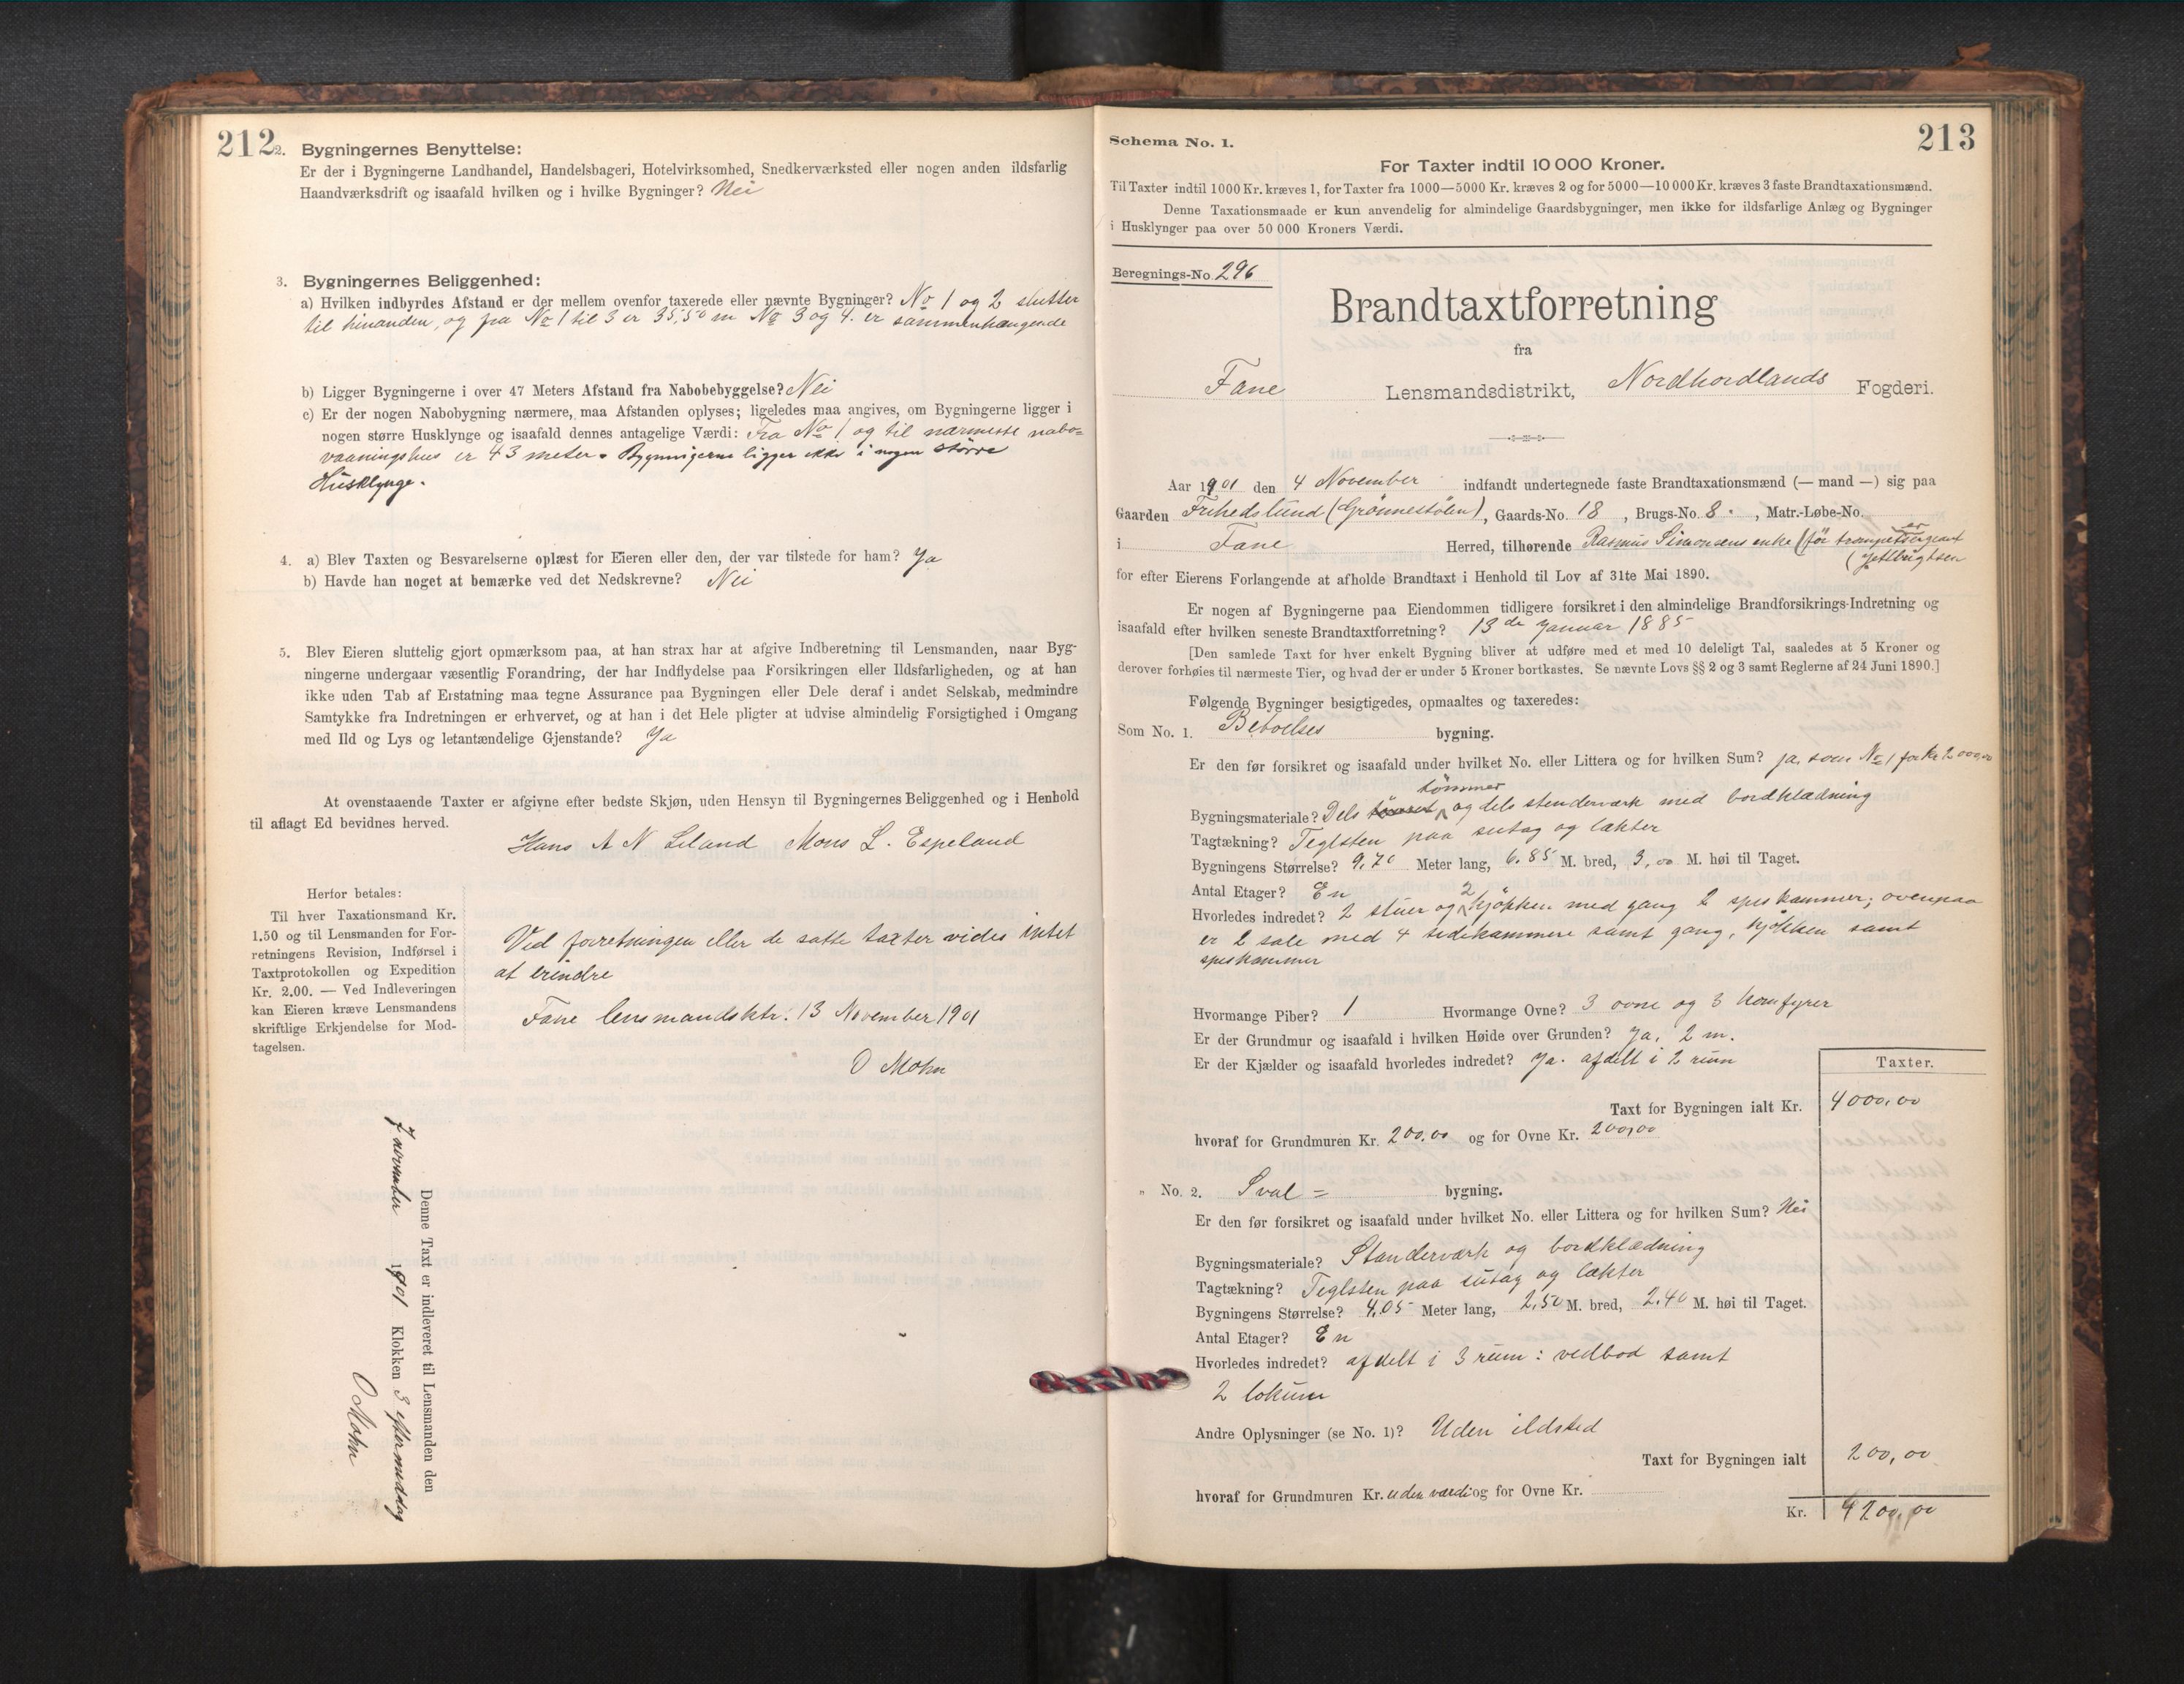 212
2. Bygningernes Benyttelse:
Er der i Bygningerne Landhandel, Handelsbageri, Hotelvirksomhed, Snedkerværksted eller nogen anden ildsfarlig
Haandværksdrift og isaafald hvilken og i hvilke Bygninger? Nei
3. Bygningernes Beliggenhed:
a) Hvilken indbyrdes Afstand er der mellem ovenfor taxerede eller nævnte Bygninger? No 1 og 2 slutter
til hinanden, og fra No 1 til 3 er 35,50 m No 3 og 4. er sammenhængende
b) Ligger Bygningerne i over 47 Meters Afstand fra Nabobebyggelse? Nei
c) Er der nogen Nabobygning nærmere, maa Afstanden oplyses; ligeledes maa angives, om Bygningerne ligger i
nogen større Husklynge og isaafald dennes antagelige Værdi: Fra No 1 og til nærmeste nabo=
vaaningshus er 43 meter. Bygningerne ligger ikke i nogen större
Husklynge.
4. a) Blev Taxten og Besvarelserne oplæst for Eieren eller den, der var tilstede for ham? Ja
b) Havde han noget at bemærke ved det Nedskrevne? Nei
5. Blev Eieren sluttelig gjort opmærksom paa, at han strax har at afgive Indberetning til Lensmanden, naar Byg-
ningerne undergaar væsentlig Forandring, der har Indflydelse paa Forsikringen eller Ildsfarligheden, og at han
ikke uden Tab af Erstatning maa tegne Assurance paa Bygningen eller Dele deraf i andet Selskab, medmindre
Samtykke fra Indretningen er erhvervet, og at han i det Hele pligter at udvise almindelig Forsigtighed i Omgang
med Ild og Lys og letantændelige Gjenstande? Ja
At ovenstaaende Taxter er afgivne efter bedste Skjøn, uden Hensyn til Bygningernes Beliggenhed og i Henhold
til aflagt Ed bevidnes herved.
Hans A N Liland Mons L. Espeland
Herfor betales:
Til hver Taxationsmand Kr.
1.50 og til Lensmanden for For-
retningens Revision, Indførsel i
Taxtprotokollen og Expedition
Kr. 2.00. — Ved Indleveringen
kan Eieren kræve Lensmandens
skriftlige Erkjendelse for Mod-
tagelsen.
Ved forretningen eller de satte taxter vides intet
at erindre
Fane lensmandsktr. 13 November 1901
O Mohn
Denne Taxt er indleveret til Lensmanden den
7 november 1901 Klokken 3 eftermiddag
O Mohn
213
Schema No. 1.
For Taxter indtil 10 000 Kroner.
Til Taxter indtil 1000 Kr. kræves 1, for Taxter fra 1000—5000 Kr. kræves 2 og for 5000—10 000 Kr. kræves 3 faste Brandtaxationsmænd.
Denne Taxationsmaade er kun anvendelig for almindelige Gaardsbygninger, men ikke for ildsfarlige Anlæg og Bygninger
i Husklynger paa over 50 000 Kroners Værdi.
Beregnings-No. 296
Brandtaxtforretning
fra
Fane Lensmandsdistrikt, Nordhordlands Fogderi.
Aar 1901 den 4 November indfandt undertegnede faste Brandtaxationsmænd (— mand —) sig paa
Gaarden Frihedslund (Grønnestølen), Gaards-No. 18, Brugs-No. 8., Matr.-Løbe-No.
i Fane Herred, tilhørende Rasmus Simonsens enke (för trompetersergeant
for efter Eierens Forlangende at afholde Brandtaxt i Henhold til Lov af 31te Mai 1890.
Er nogen af Bygningerne paa Eiendommen tidligere forsikret i den almindelige Brandforsikrings-Indretning og
isaafald efter hvilken seneste Brandtaxtforretning? 13de Januar 1885
[Den samlede Taxt for hver enkelt Bygning bliver at udføre med et med 10 deleligt Tal, saaledes at 5 Kroner og
derover forhøies til nærmeste Tier, og hvad der er under 5 Kroner bortkastes. Se nævnte Lovs §§ 2 og 3 samt Reglerne af 24 Juni 1890.]
Følgende Bygninger besigtigedes, opmaaltes og taxeredes:
Som No. 1. Beboelses bygning.
Er den før forsikret og isaafald under hvilket No. eller Littera og for hvilken Sum? ja, som No 1 for kr 2000,00
tömmer
Bygningsmateriale? Dels og dels stenderværk med bordklædning
Tagtækning? Teglsten paa sutag og lækter
Bygningens Størrelse? 9,70 Meter lang, 6.85 M. bred, 3,00 M. høi til Taget.
Antal Etager? En
Hvorledes indredet? 2 stuer og 2 kjökken med gang 2 speskammer; ovenpaa
er 2 sale med 4 sidekammere samt gang, kjökken samt
speskammer
Hvormange Piber? 1 Hvormange Ovne? 3 ovne og 3 komfyrer
Er der Grundmur og isaafald i hvilken Høide over Grunden? Ja, 2 m.
Er der Kjælder og isaafald hvorledes indredet? Ja. afdelt i 2 rum
Taxter.
Taxt for Bygningen ialt Kr. 4000,00
hvoraf for Grundmuren Kr. 200,00 og for Ovne Kr. 200,00
" No. 2. Sval= bygning.
Er den før forsikret og isaafald under hvilket No. eller Littera og for hvilken Sum? Nei
Bygningsmateriale? Standerværk og bordklædning
Tagtækning? Teglsten paa sutag og lækter
Bygningens Størrelse? 4,05 Meter lang, 2,50 M. bred, 2.40 M. høi til Taget.
Antal Etager? En
Hvorledes indredet? afdelt i 3 rum: vedbod samt
2 lokum
Andre Oplysninger (se No. 1)? Uden ildsted
Taxt for Bygningen ialt 200,00
hvoraf for Grundmuren Kr. uden værdi og for Ovne Kr.
Kr. 4200,00